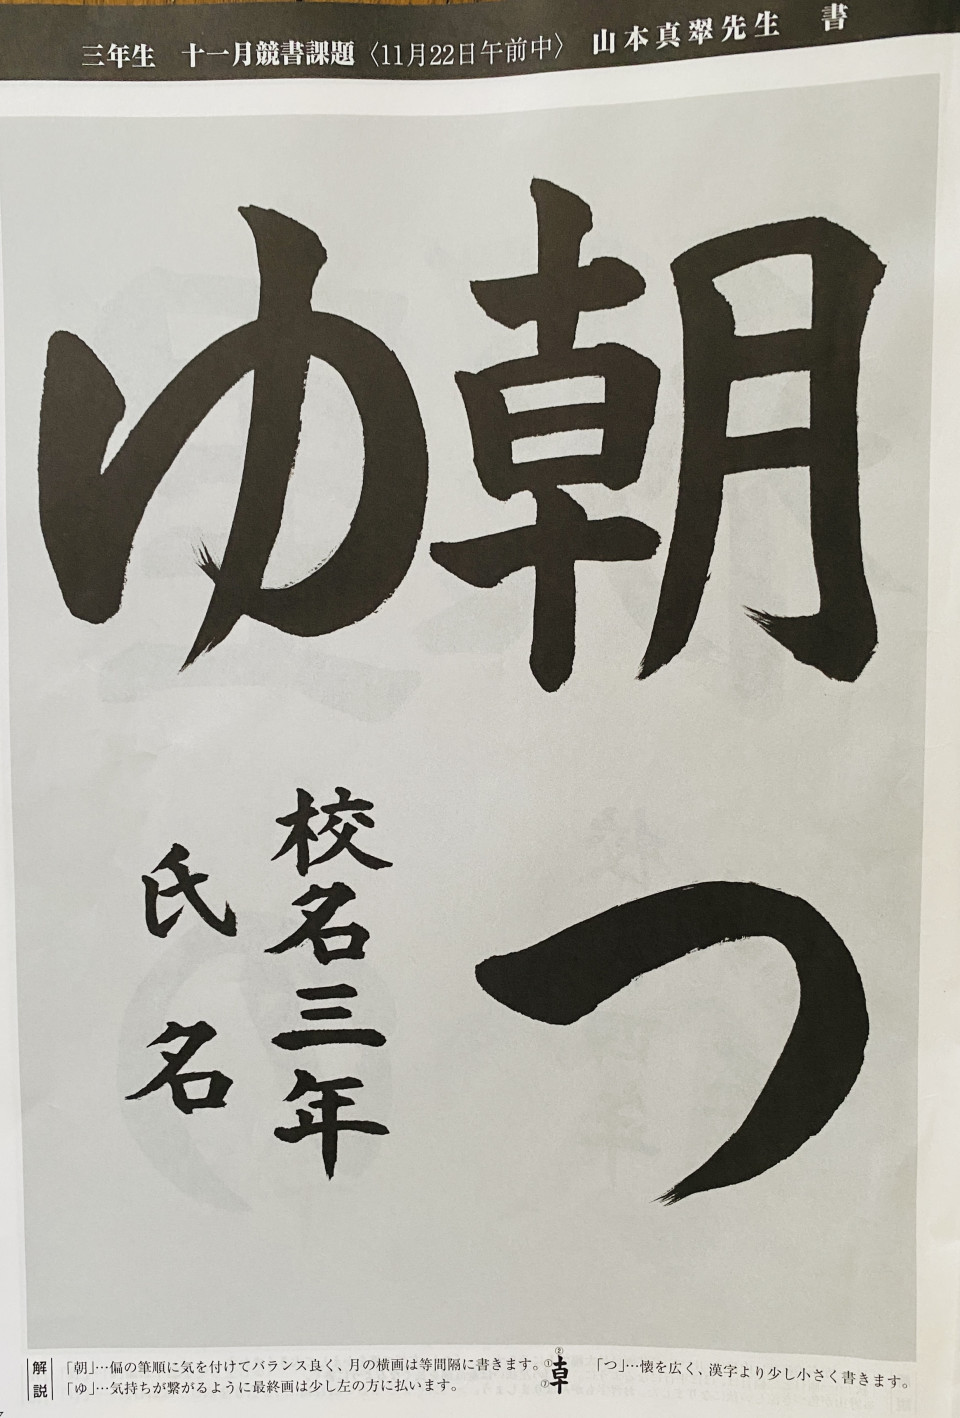 三年生 十一月競書課題〈11月22日午前中〉 山本真翠先生 書
朝つ
ゆ
校名三年
氏名
解説
「朝」…偏の筆順に気を付けてバランス良く、月の横画は等間隔に書きます。
「ゆ」…気持ちが繋がるように最終画は少し左の方に払います。
「つ」…懐を広く、漢字より少し小さく書きます。